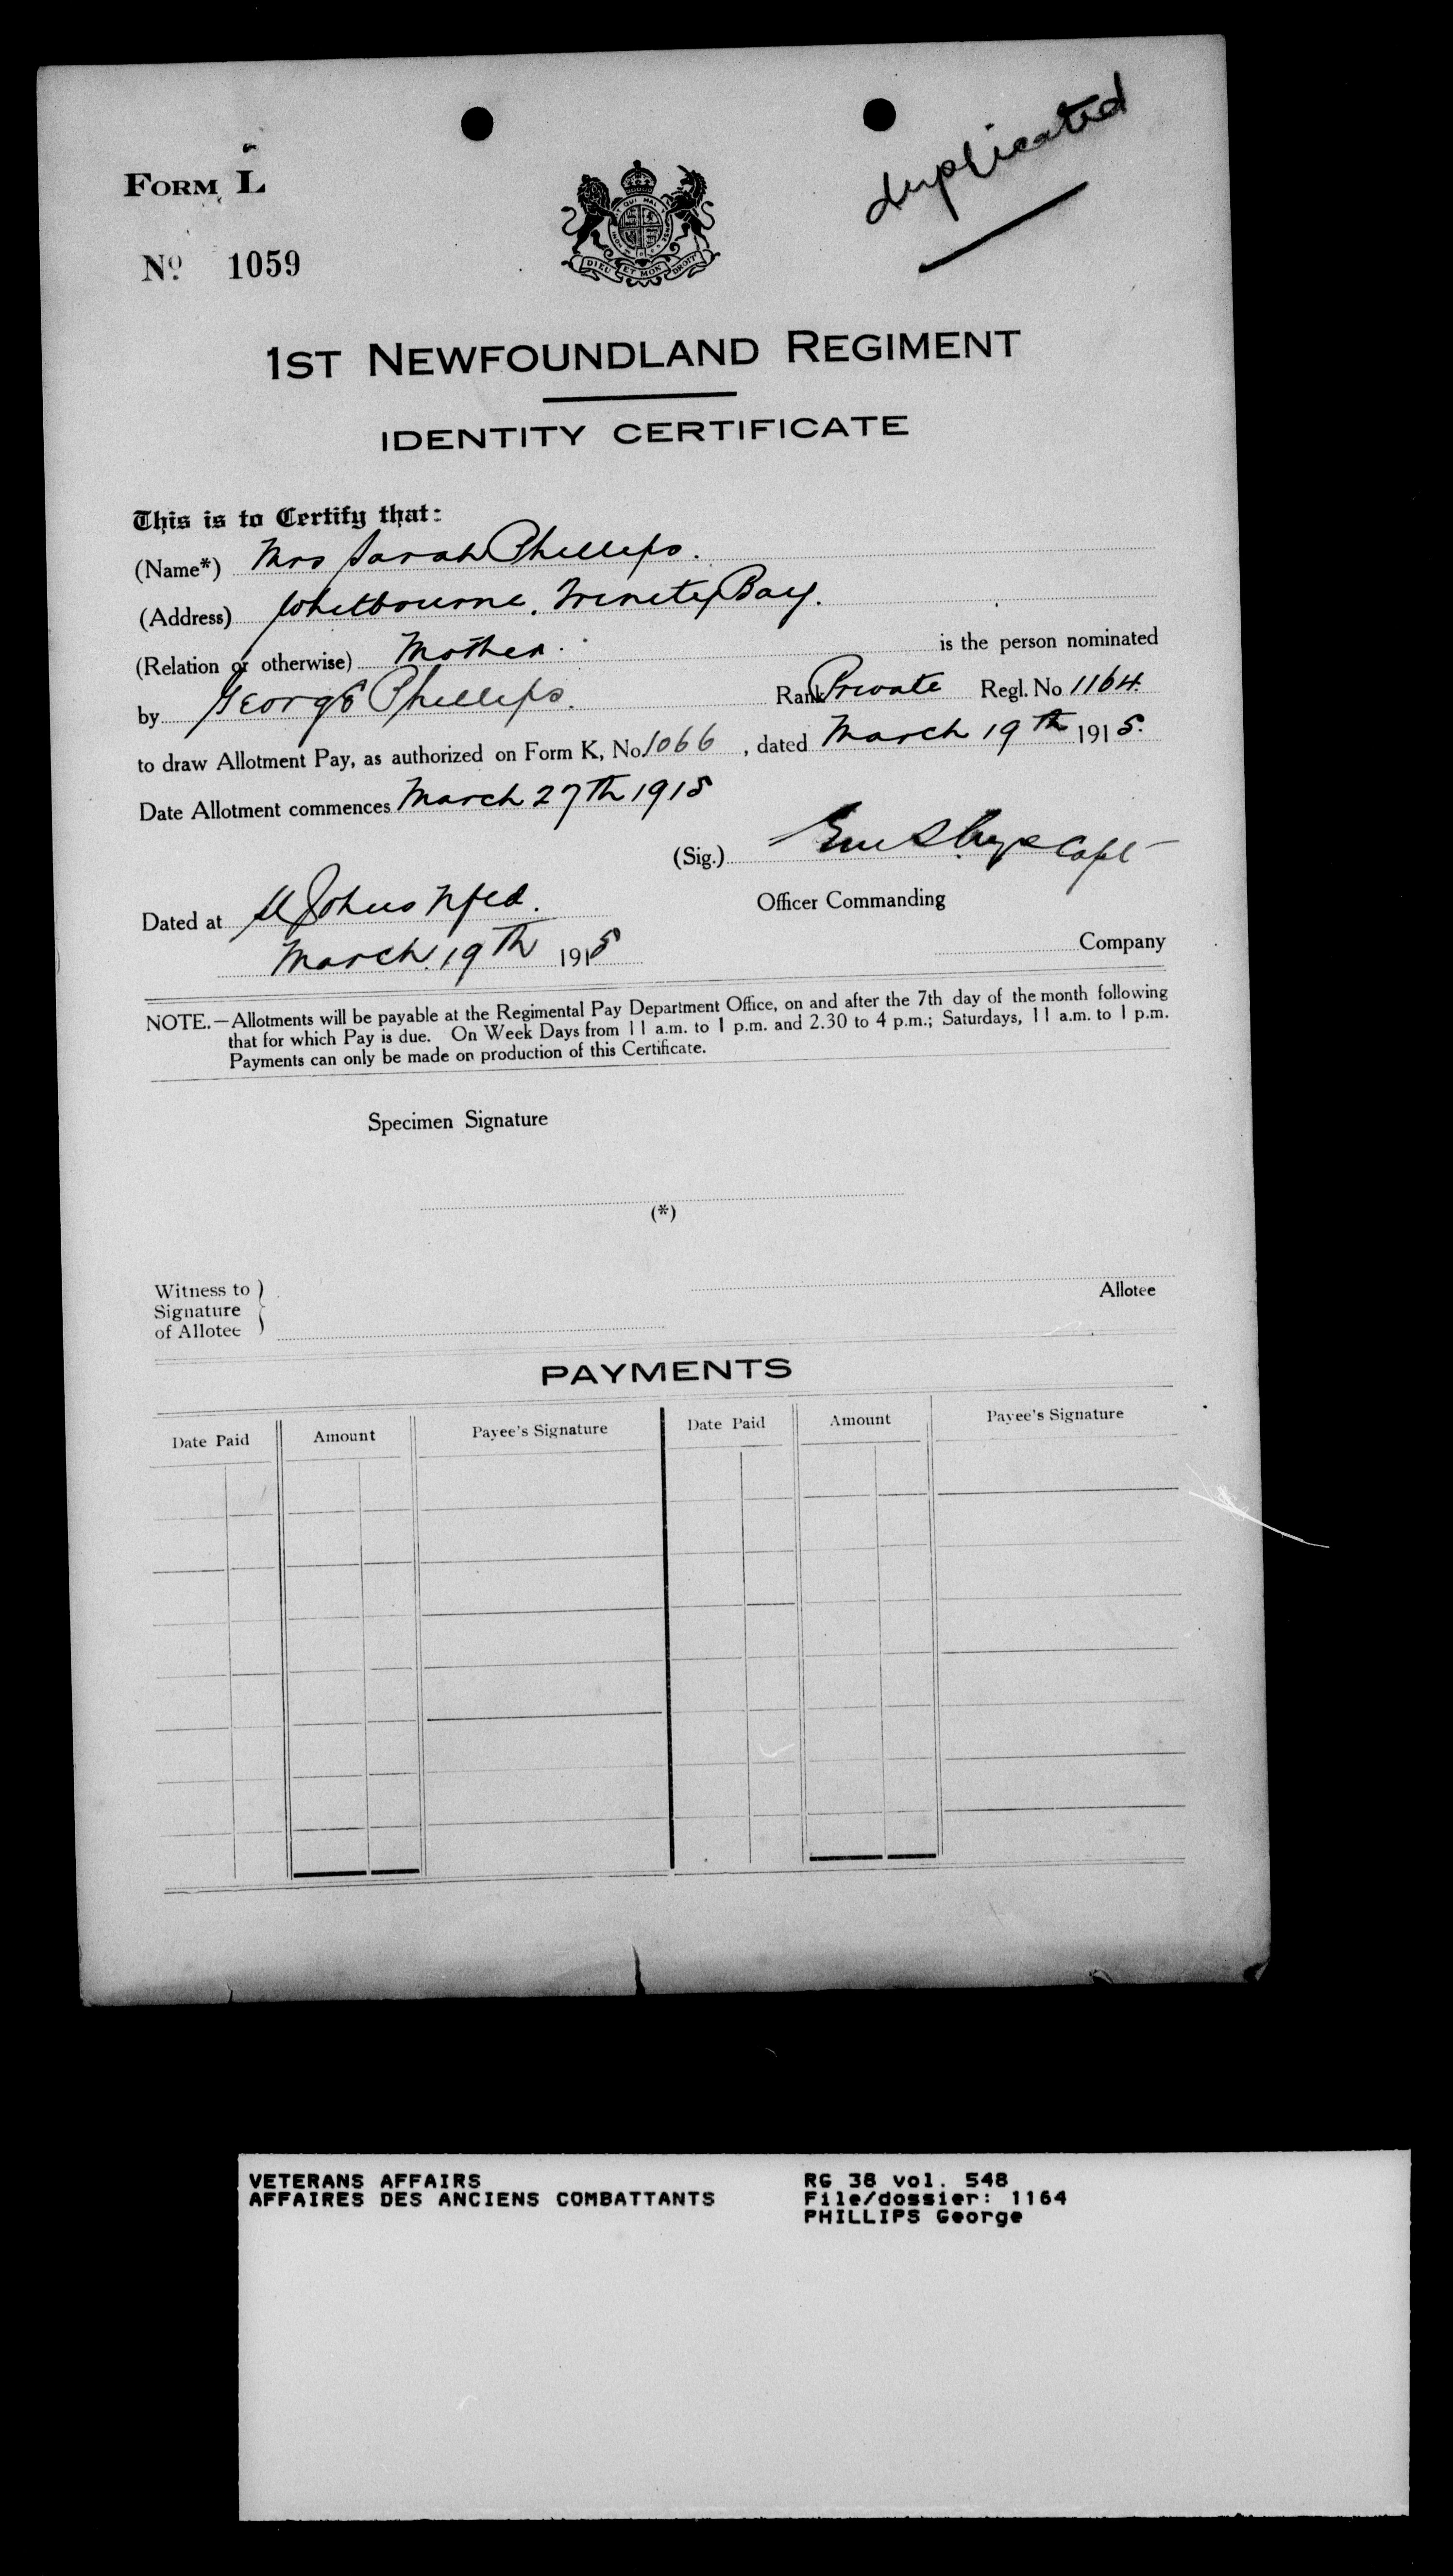 duplicated
FORM L
Nº 1059
DIEU ET MON DROIT
1ST NEWFOUNDLAND REGIMENT
IDENTITY CERTIFICATE
This is to Certify that:
(Name*) Mrs Sarah Phillips.
(Address) Whitbourne. Trinity Bay.
(Relation or otherwise) Mother. is the person nominated
by George Phillips. Rank Private Regl. No 1164.
to draw Allotment Pay, as authorized on Form K, No. 1066, dated March 19th 1915.
Date Allotment commences March 27th 1915
(Sig.) Capt
Officer Commanding
Dated at St Johns Nfld.
March. 19th 1915
Company
NOTE.—Allotments will be payable at the Regimental Pay Department Office, on and after the 7th day of the month following
that for which Pay is due. On Week Days from 11 a.m. to 1 p.m. and 2.30 to 4 p.m.; Saturdays, 11 a.m. to 1 p.m.
Payments can only be made on production of this Certificate.
Specimen Signature
(*)
Witness to
Signature
of Allotee
Allotee
PAYMENTS
Date Paid Amount Payee's Signature Date Paid Amount Payee's Signature
VETERANS AFFAIRS RG 38 vol. 548
AFFAIRES DES ANCIENS COMBATTANTS File/dossier: 1164
PHILLIPS George